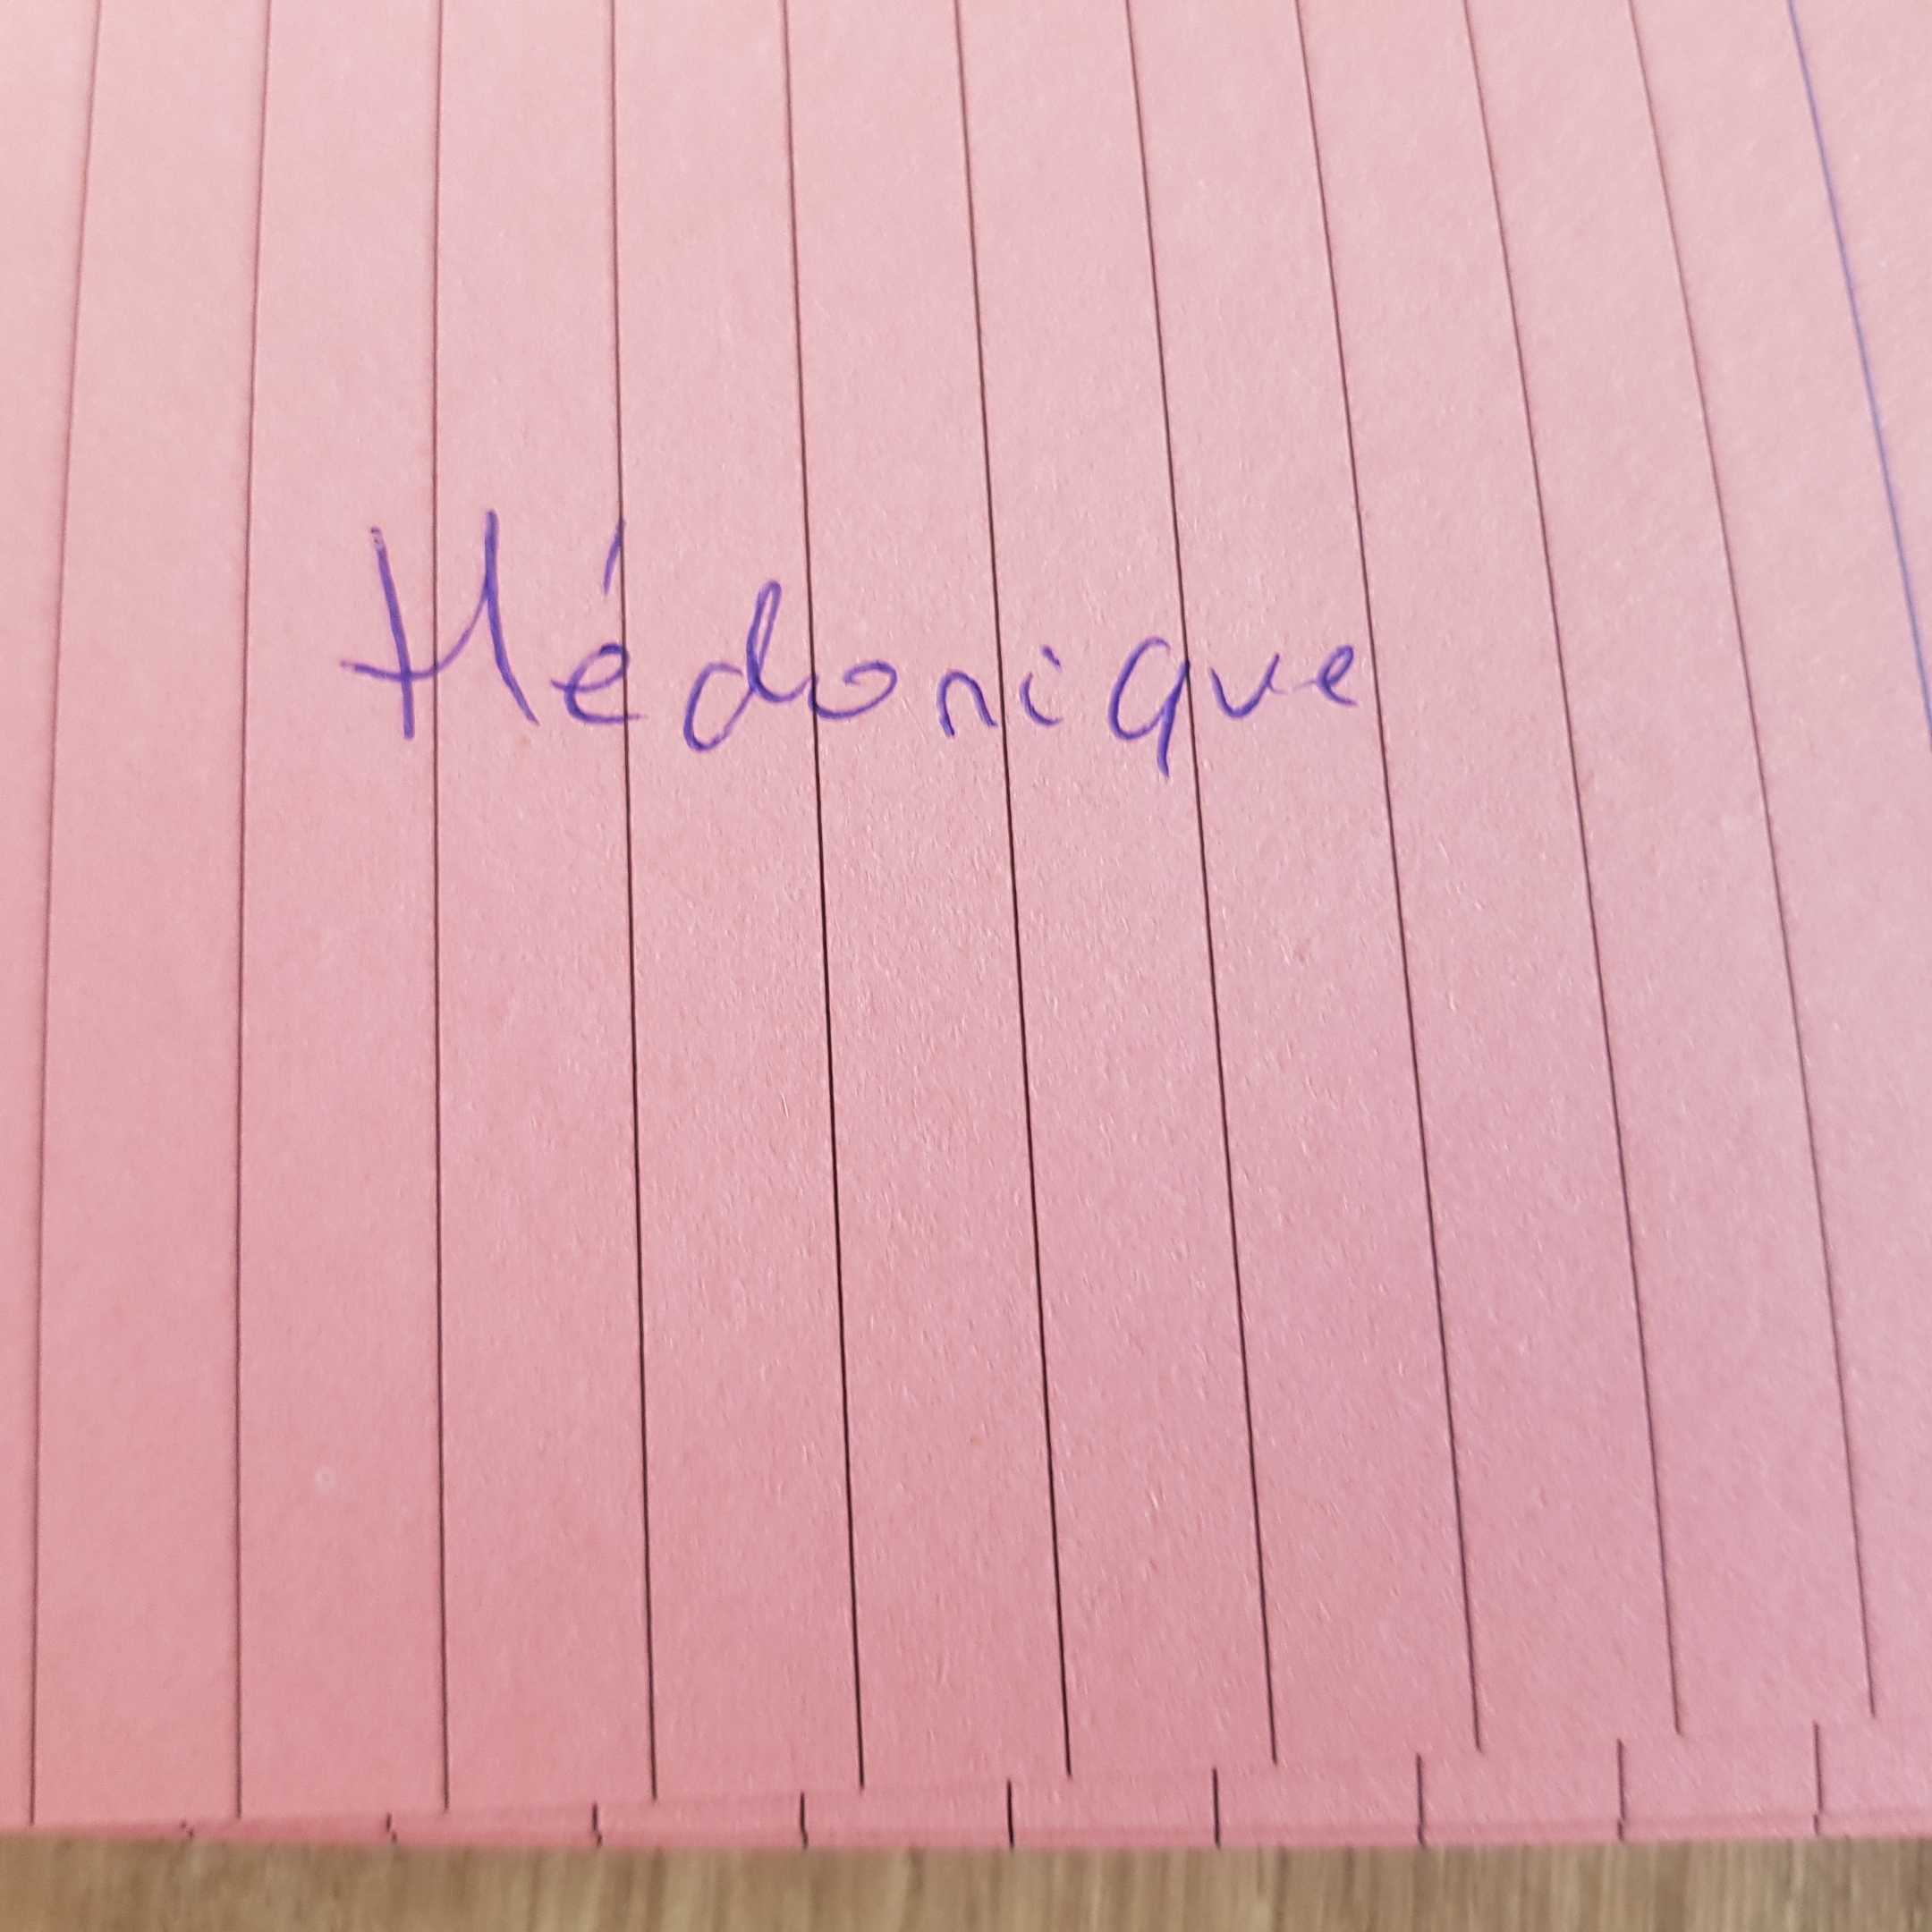 Hédonique